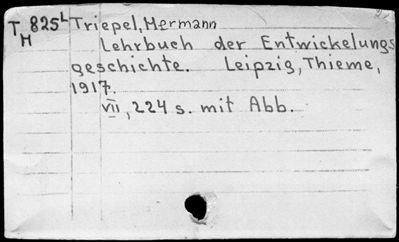 T 825L Triepel, Hermann
H Lehrbuch der Entwickelungs
geschichte. Leipzig, Thieme,
1917.
VII, 224 s. mit Abb.